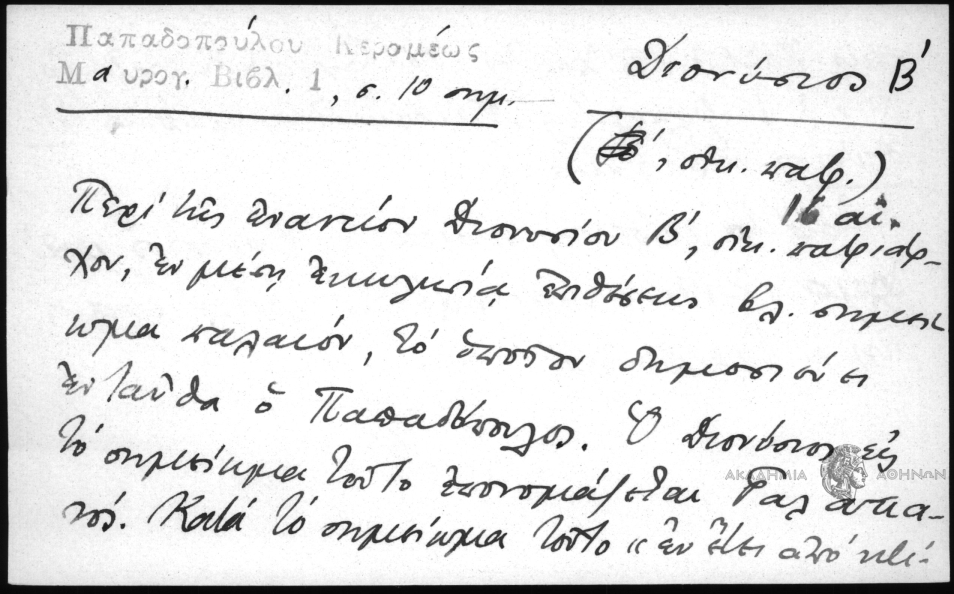 Παπαδοπούλου Κεραμέως
Μαυρογ. Βιβλ. 1, σ. 10 σημ.
Διονύσιος Β΄
(Β΄, οἰκ. πατρ.)
16 αἰ.
Περί τῆς ἐναντίον Διονυσίου Β΄, οἰκ. πατριάρ-
χου, ἐν μέσῃ ἐκκλησίᾳ ἐπιθέσεως βλ. σημεί-
ωμα παλαιόν, τό ὁποῖον δημοσιεύει
ἐνταῦθα ὁ Παπαδόπουλος. Ὁ Διονύσιος εἰς
τό σημείωμα τοῦτο ἐπονομάζεται Γαλατια-
νός. Κατά τό σημείωμα τοῦτο «ἐν ἔτει ἀπό κτί-
ΑΚΑΔΗΜΙΑ ΑΘΗΝΩΝ